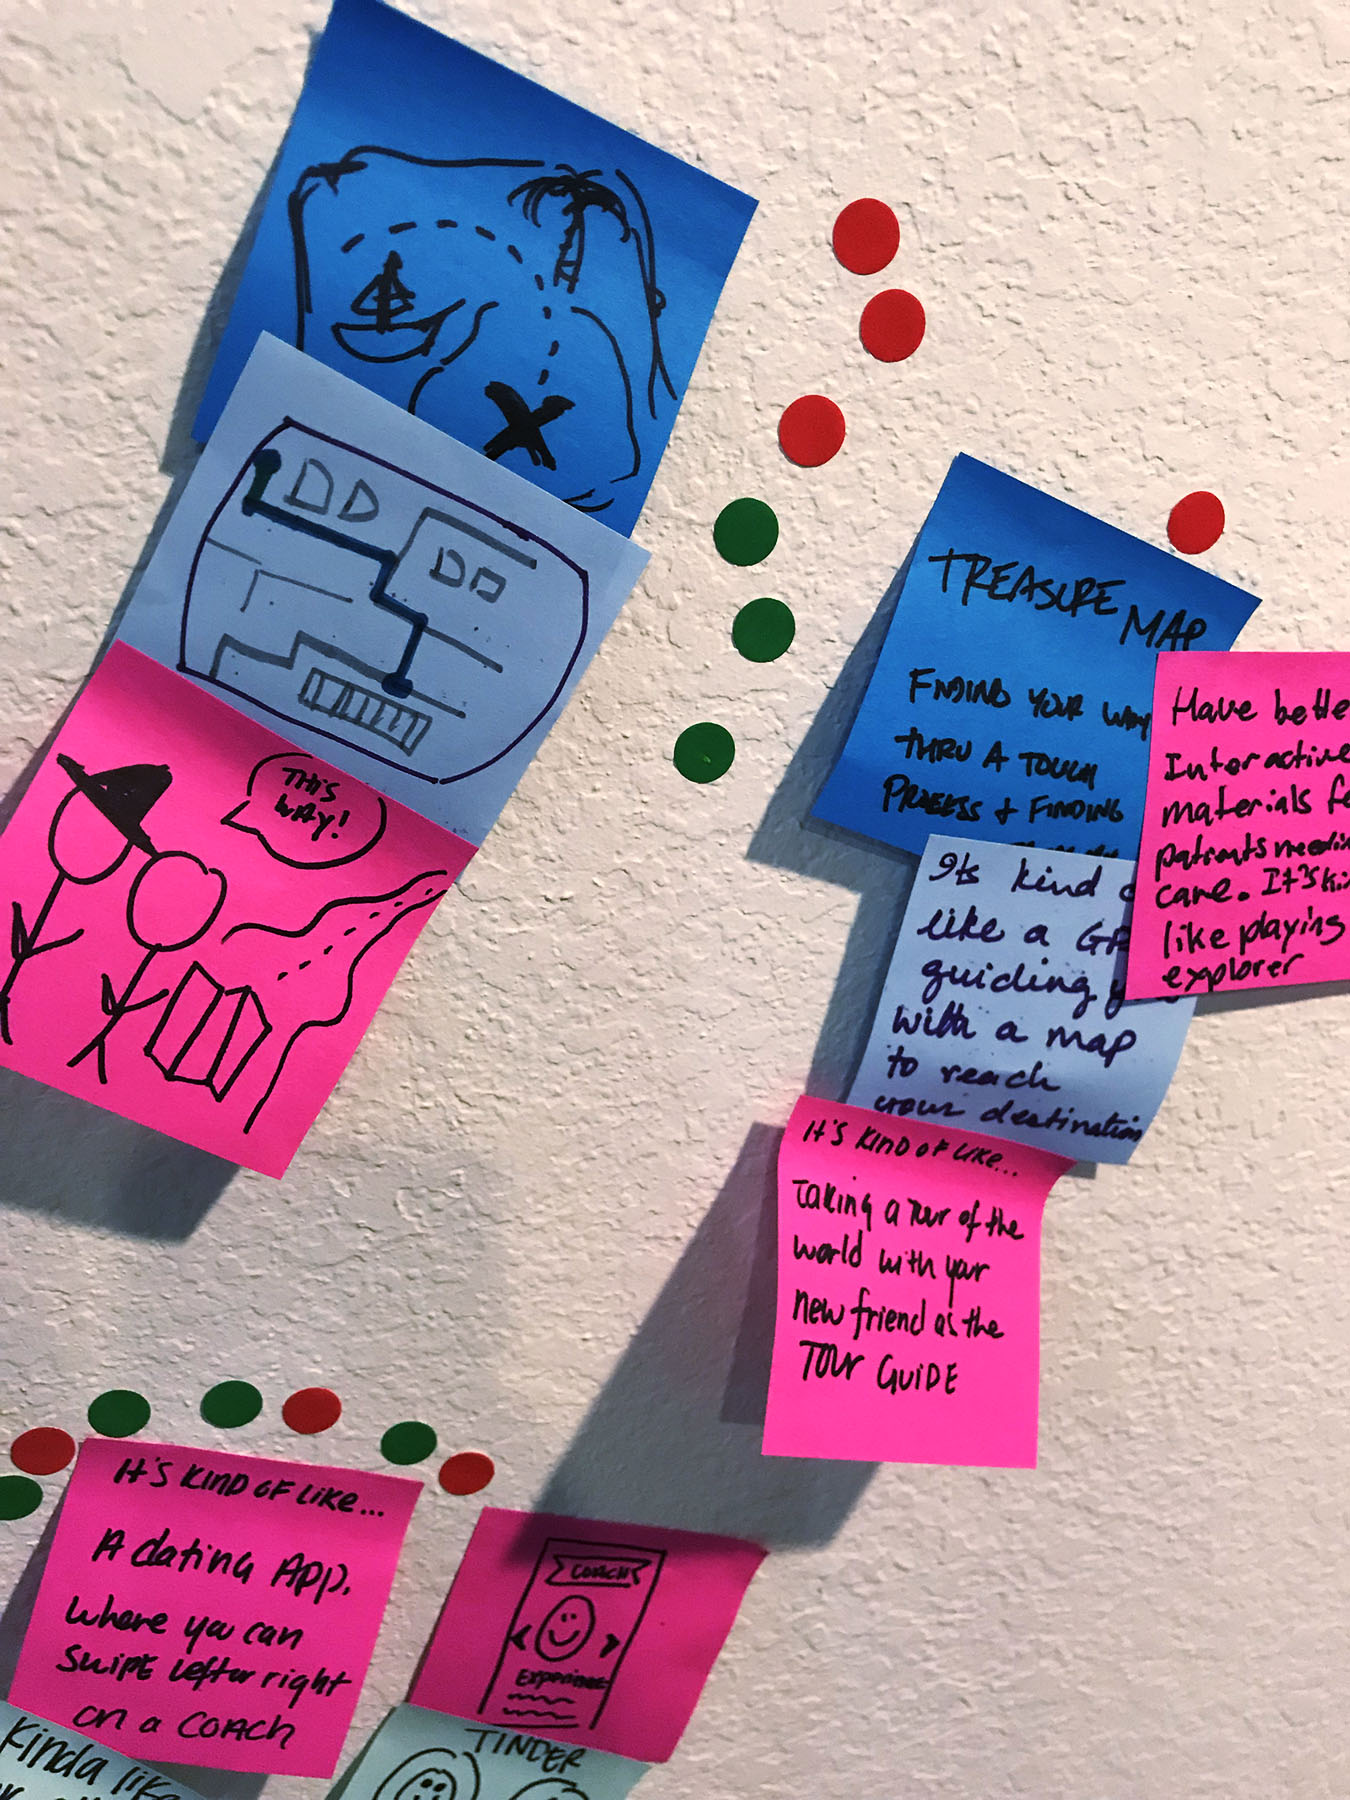 THIS
WAY!
TREASURE
MAP
FINDING YOUR WAY
THRU A TOUGH
PROCESS + FINDING
Have bette
Interactive
materials fo
patients needin
care. It's ki
like playing
explorer
Its kind o
like a GP
guiding y
with a map
to reach
your destination
It's KIND OF LIKE...
Taking a Tour of the
world with your
new friend as the
TOUR GUIDE
IT'S KIND OF LIKE...
A dating App.
Where you can
SWIPE left or right
on a COACH
COACH
Experience
TINDER
Kinda like